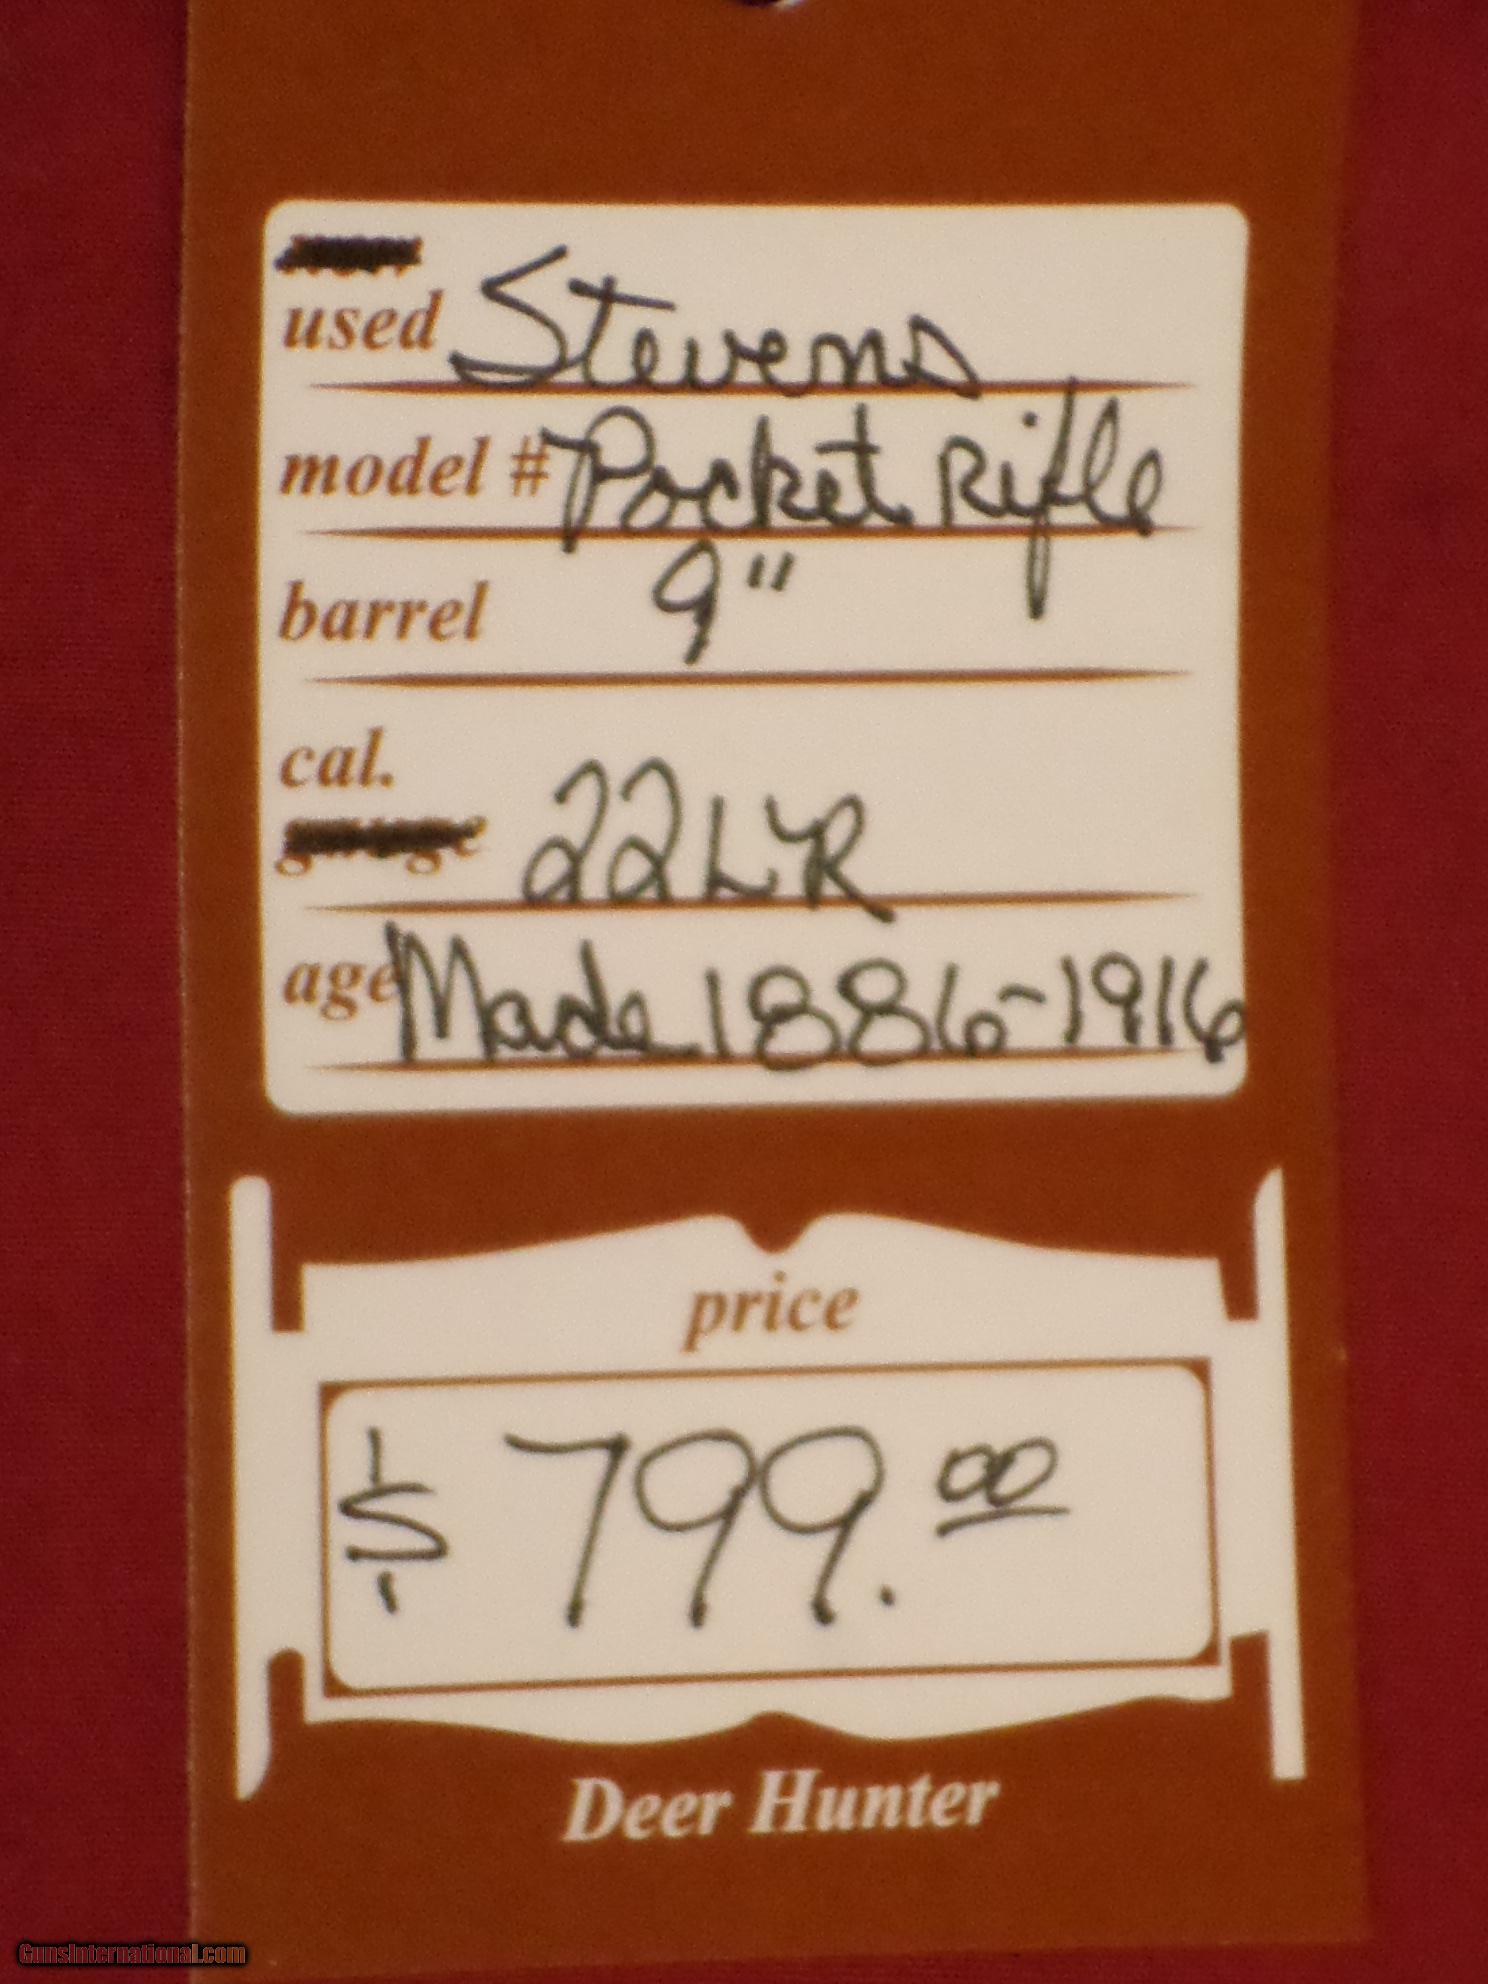 used Stevens
model # Pocket Rifle
barrel 9"
cal.
22LR
age Made 1886-1916
price
$ 799.00
Deer Hunter
GunsInternational.com